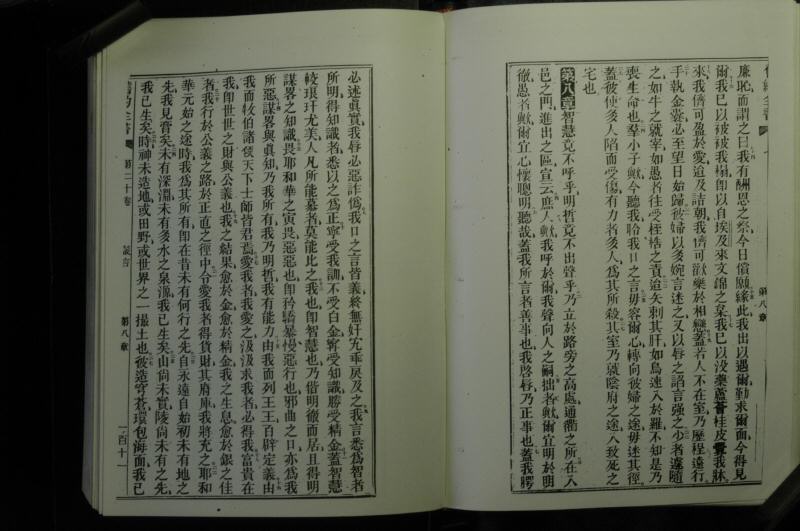 廉恥而謂之曰我有酬恩之祭今日償願緣此我出以遇爾勤求爾面今得見
爾我已以被被我榻卽以自埃及來文錦之某我已以沒藥蘆薈桂皮熏我牀
來我儕可盈於愛迨及詰朝我儕可歡樂於相戀蓋若人不在室乃歷程遠行
手執金囊必至望日始歸彼婦以多婉言迷之又以唇之諂言强之少者遽隨
之如牛之就宰如愚者往受桎梏之責迨矢刺其肝如鳥速入於羅不知是乃
喪生命也羣小子歟今聽我聆我口之言毋容爾心轉向彼婦之途毋迷其徑
蓋彼使多人陷而受傷有力者多人爲其所殺其室乃就陰府之途入致死之
宅也
第八章智慧竟不呼乎明哲竟不出聲乎乃立於路旁之高處通衢之所在入
邑之門進出之區宣云庶人歟我呼於爾我聲向人之嗣拙者歟爾宜明於明
徹愚者歟爾宜心懷聰明聽哉蓋我所言者善事也我啓唇乃正事也蓋我腭
必述眞實我唇必惡詐僞我口之言皆義終無奸宄乖戾及之我言悉爲智者
所明得知識者悉以之爲正寧受我訓不受白金寧受知識勝受精金蓋智慧
較琅玕尤美人凡所能慕者莫能比之我也卽智慧也乃偕明徹而居且得明
謀畧之知識畏耶和華之寅畏惡惡也卽矜驕暴慢惡行也邪曲之口亦爲我
所惡謀畧與眞知乃我所有我乃明哲我有能力由我而列王王百辟定義由
我而牧伯諸侯天下士師皆君焉愛我者我愛之汲汲求我者必得我富貴在
我卽世世之財與公義也我之結果愈於金愈於精金我之生息愈於銀之佳
者我行於公義之路於正直之徑中令愛我者得貨財其府庫我將充之耶和
華元始之途時我爲其所有卽在昔未有何行之先自永遠自始初未有地之
先我見膏矣未有深淵未有多水之泉源我已生矣山尙未有實陵尙未有之先
我已生矣時神未造地或田野或世界之一撮土也彼造穹蒼環包海面我已
第八章
第二十卷 箴言 第八章 二百十一